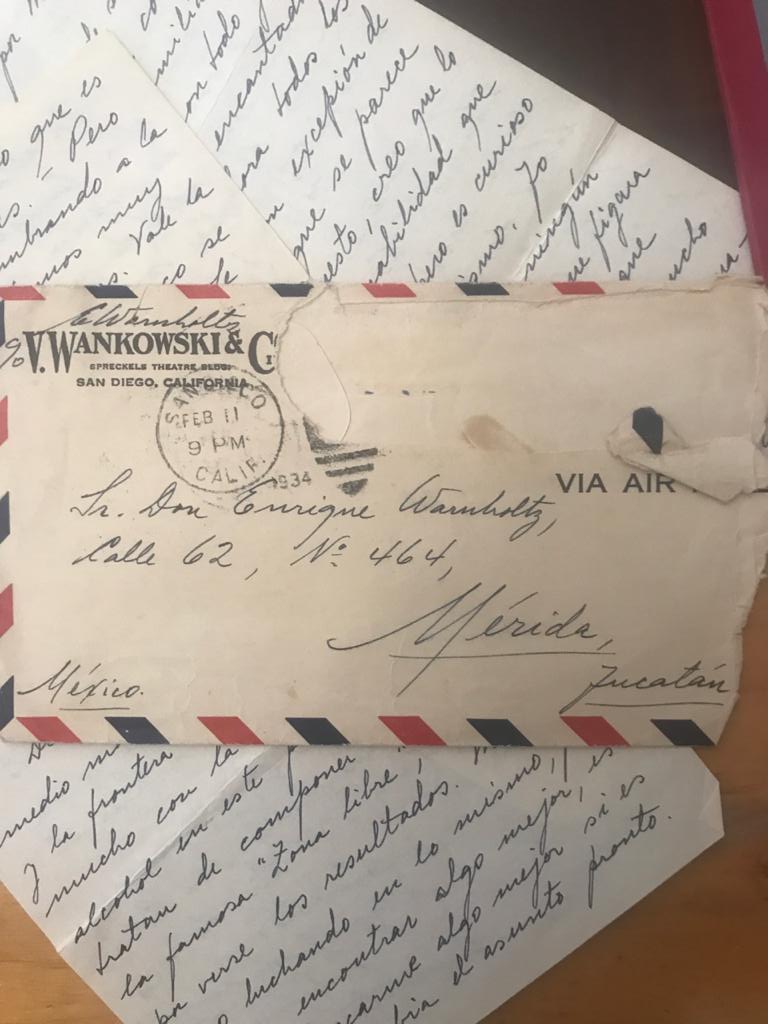 o que es
es. - Pero
umbrando a la
mos muy
Vale la
co se
con todo
encantad
para todos los
excepción de
que se parece
esto, creo que lo
abilidad que
pero es curioso
ismo. Yo
ningún
me figura
que
ucho
E Warnholtz
% V. WANKOWSKI & C
SPRECKELS THEATRE BLDG.
SAN DIEGO, CALIFORNIA
SAN DIEGO
FEB 11
9 PM
CALIF.
1934
VIA AIR
Sr. Don Enrique Warnholtz,
Calle 62, No. 464,
Mérida,
Yucatán
México.
medio
y la frontera
mucho con la
alcohol en este
tratan de componer
la famosa "Zona libre",
verse los resultados.
luchando en lo mismo,
encontrar algo mejor, es
carme algo mejor si es
bia el asunto pronto.